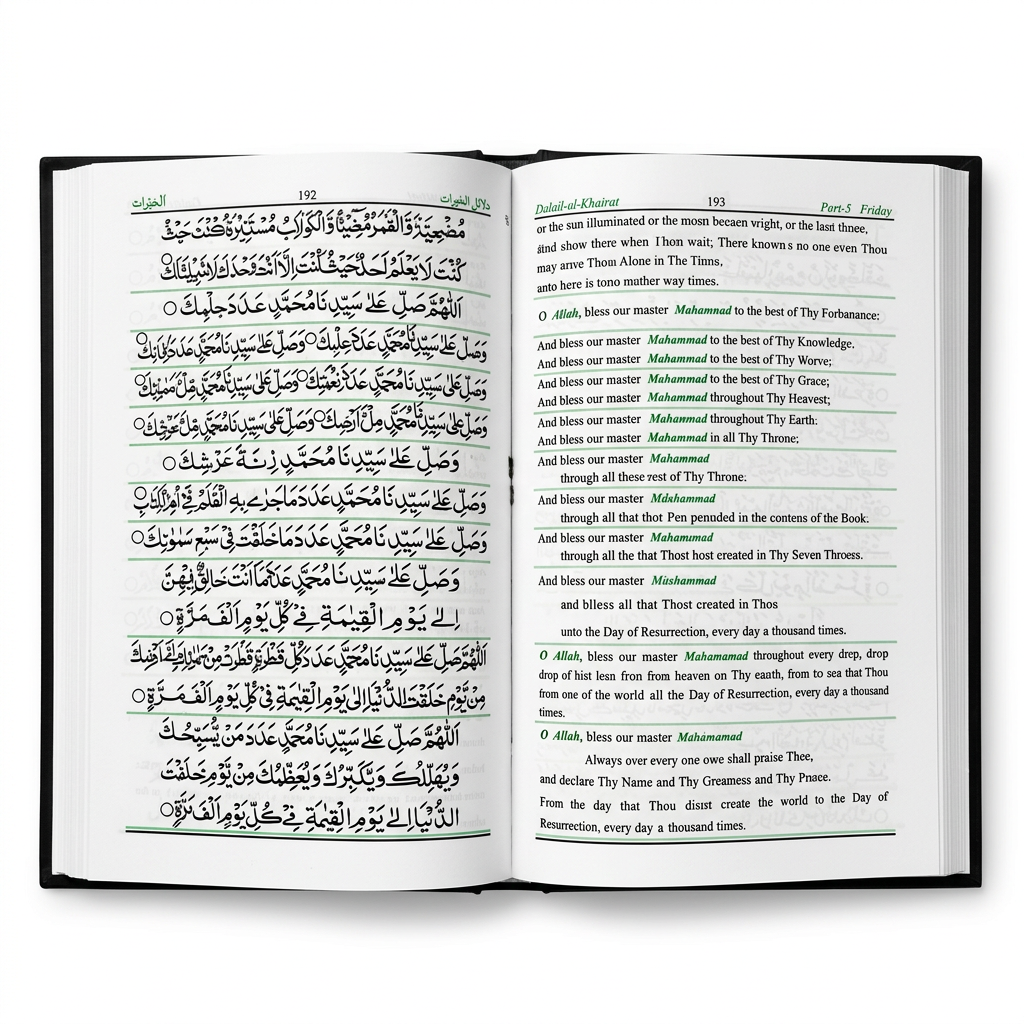 الخيرات
192
دلائل الخيرات
كُنْتَ لَا يَعْلَمُ لَحَدٌ حَيْثُ كُنْتَ اِلَّا اَنْتَ وَحْدَكَ لَا شَرِيْكَ لَكَ
اَللّٰهُمَّ صَلِّ عَلٰى سَيِّدِنَا مُحَمَّدٍ عَدَدَ حِلْمِكَ
وَصَلِّ عَلٰى سَيِّدِنَا مُحَمَّدٍ عَدَدَ عِلْمِكَ وَصَلِّ عَلٰى سَيِّدِنَا مُحَمَّدٍ عَدَدَ
وَصَلِّ عَلٰى سَيِّدِنَا مُحَمَّدٍ عَدَدَ نِعْمَتِكَ وَصَلِّ عَلٰى سَيِّدِنَا مُحَمَّدٍ مِلْءَ
وَصَلِّ عَلٰى سَيِّدِنَا مُحَمَّدٍ مِلْءَ اَرْضِكَ وَصَلِّ عَلٰى سَيِّدِنَا مُحَمَّدٍ مِلْءَ عَرْشِكَ
وَصَلِّ عَلٰى سَيِّدِنَا مُحَمَّدٍ زِنَةَ عَرْشِكَ
وَصَلِّ عَلٰى سَيِّدِنَا مُحَمَّدٍ عَدَدَ مَا جَرٰى بِهِ الْقَلَمُ فِيْ اُمِّ الْكِتَابِ
وَصَلِّ عَلٰى سَيِّدِنَا مُحَمَّدٍ عَدَدَ مَا خَلَقْتَ فِيْ سَبْعِ سَمٰوٰتِكَ
وَصَلِّ عَلٰى سَيِّدِنَا مُحَمَّدٍ عَدَدَ مَا اَنْتَ خَالِقٌ فِيْهِنَّ
اِلٰى يَوْمِ الْقِيٰمَةِ فِيْ كُلِّ يَوْمٍ اَلْفَ مَرَّةٍ
اَللّٰهُمَّ صَلِّ عَلٰى سَيِّدِنَا مُحَمَّدٍ عَدَدَ كُلِّ قَطْرَةٍ
مِنْ يَّوْمِ خَلَقْتَ الدُّنْيَا اِلٰى يَوْمِ الْقِيٰمَةِ فِيْ كُلِّ يَوْمٍ اَلْفَ مَرَّةٍ
اَللّٰهُمَّ صَلِّ عَلٰى سَيِّدِنَا مُحَمَّدٍ عَدَدَ مَنْ يُّسَبِّحُكَ
وَيُهَلِّلُكَ وَيُكَبِّرُكَ وَيُعَظِّمُكَ مِنْ يَّوْمِ خَلَقْتَ
الدُّنْيَا اِلٰى يَوْمِ الْقِيٰمَةِ فِيْ كُلِّ يَوْمٍ اَلْفَ مَرَّةٍ
Dalail-al-Khairat
193
Port-5 Friday
or the sun illuminated or the mosn becaen vright, or the last thnee,
and show there when Thon wait; There knowns no one even Thou
may arıve Thou Alone in The Tinıs,
anto here is tono mather way times.
O Allah, bless our master Mahamnad to the best of Thy Forbanance:
And bless our master Mahammad to the best of Thy Knowledge.
And bless our master Mahammad to the best of Thy Worve;
And bless our master Mahammad to the best of Thy Grace;
And bless our master Mahammad throughout Thy Heavest;
And bless our master Mahamnad throughout Thy Earth:
And bless our master Mahammad in all Thy Throne;
And bless our master Mahammad
through all these rest of Thy Throne.
And bless our master Mdshammad
through all that thot Pen penuded in the contens of the Book.
And bless our master Mahamımad
through all the that Thost host created in Thy Seven Throess.
And bless our master Mishammad
and blless all that Thost created in Thos
unto the Day of Resurrection, every day a thousand times.
O Allah, bless our master Mahamamad throughout every drep, drop
drop of hist lesn fron from heaven on Thy eaath, from to sea that Thou
from one of the world all the Day of Resurrection, every day a thousand
times.
O Allah, bless our master Mahámamad
Always over every one owe shall praise Thee,
and declare Thy Name and Thy Greamess and Thy Pnace.
From the day that Thou disıst create the world to the Day of
Resurrection, every day a thousand times.